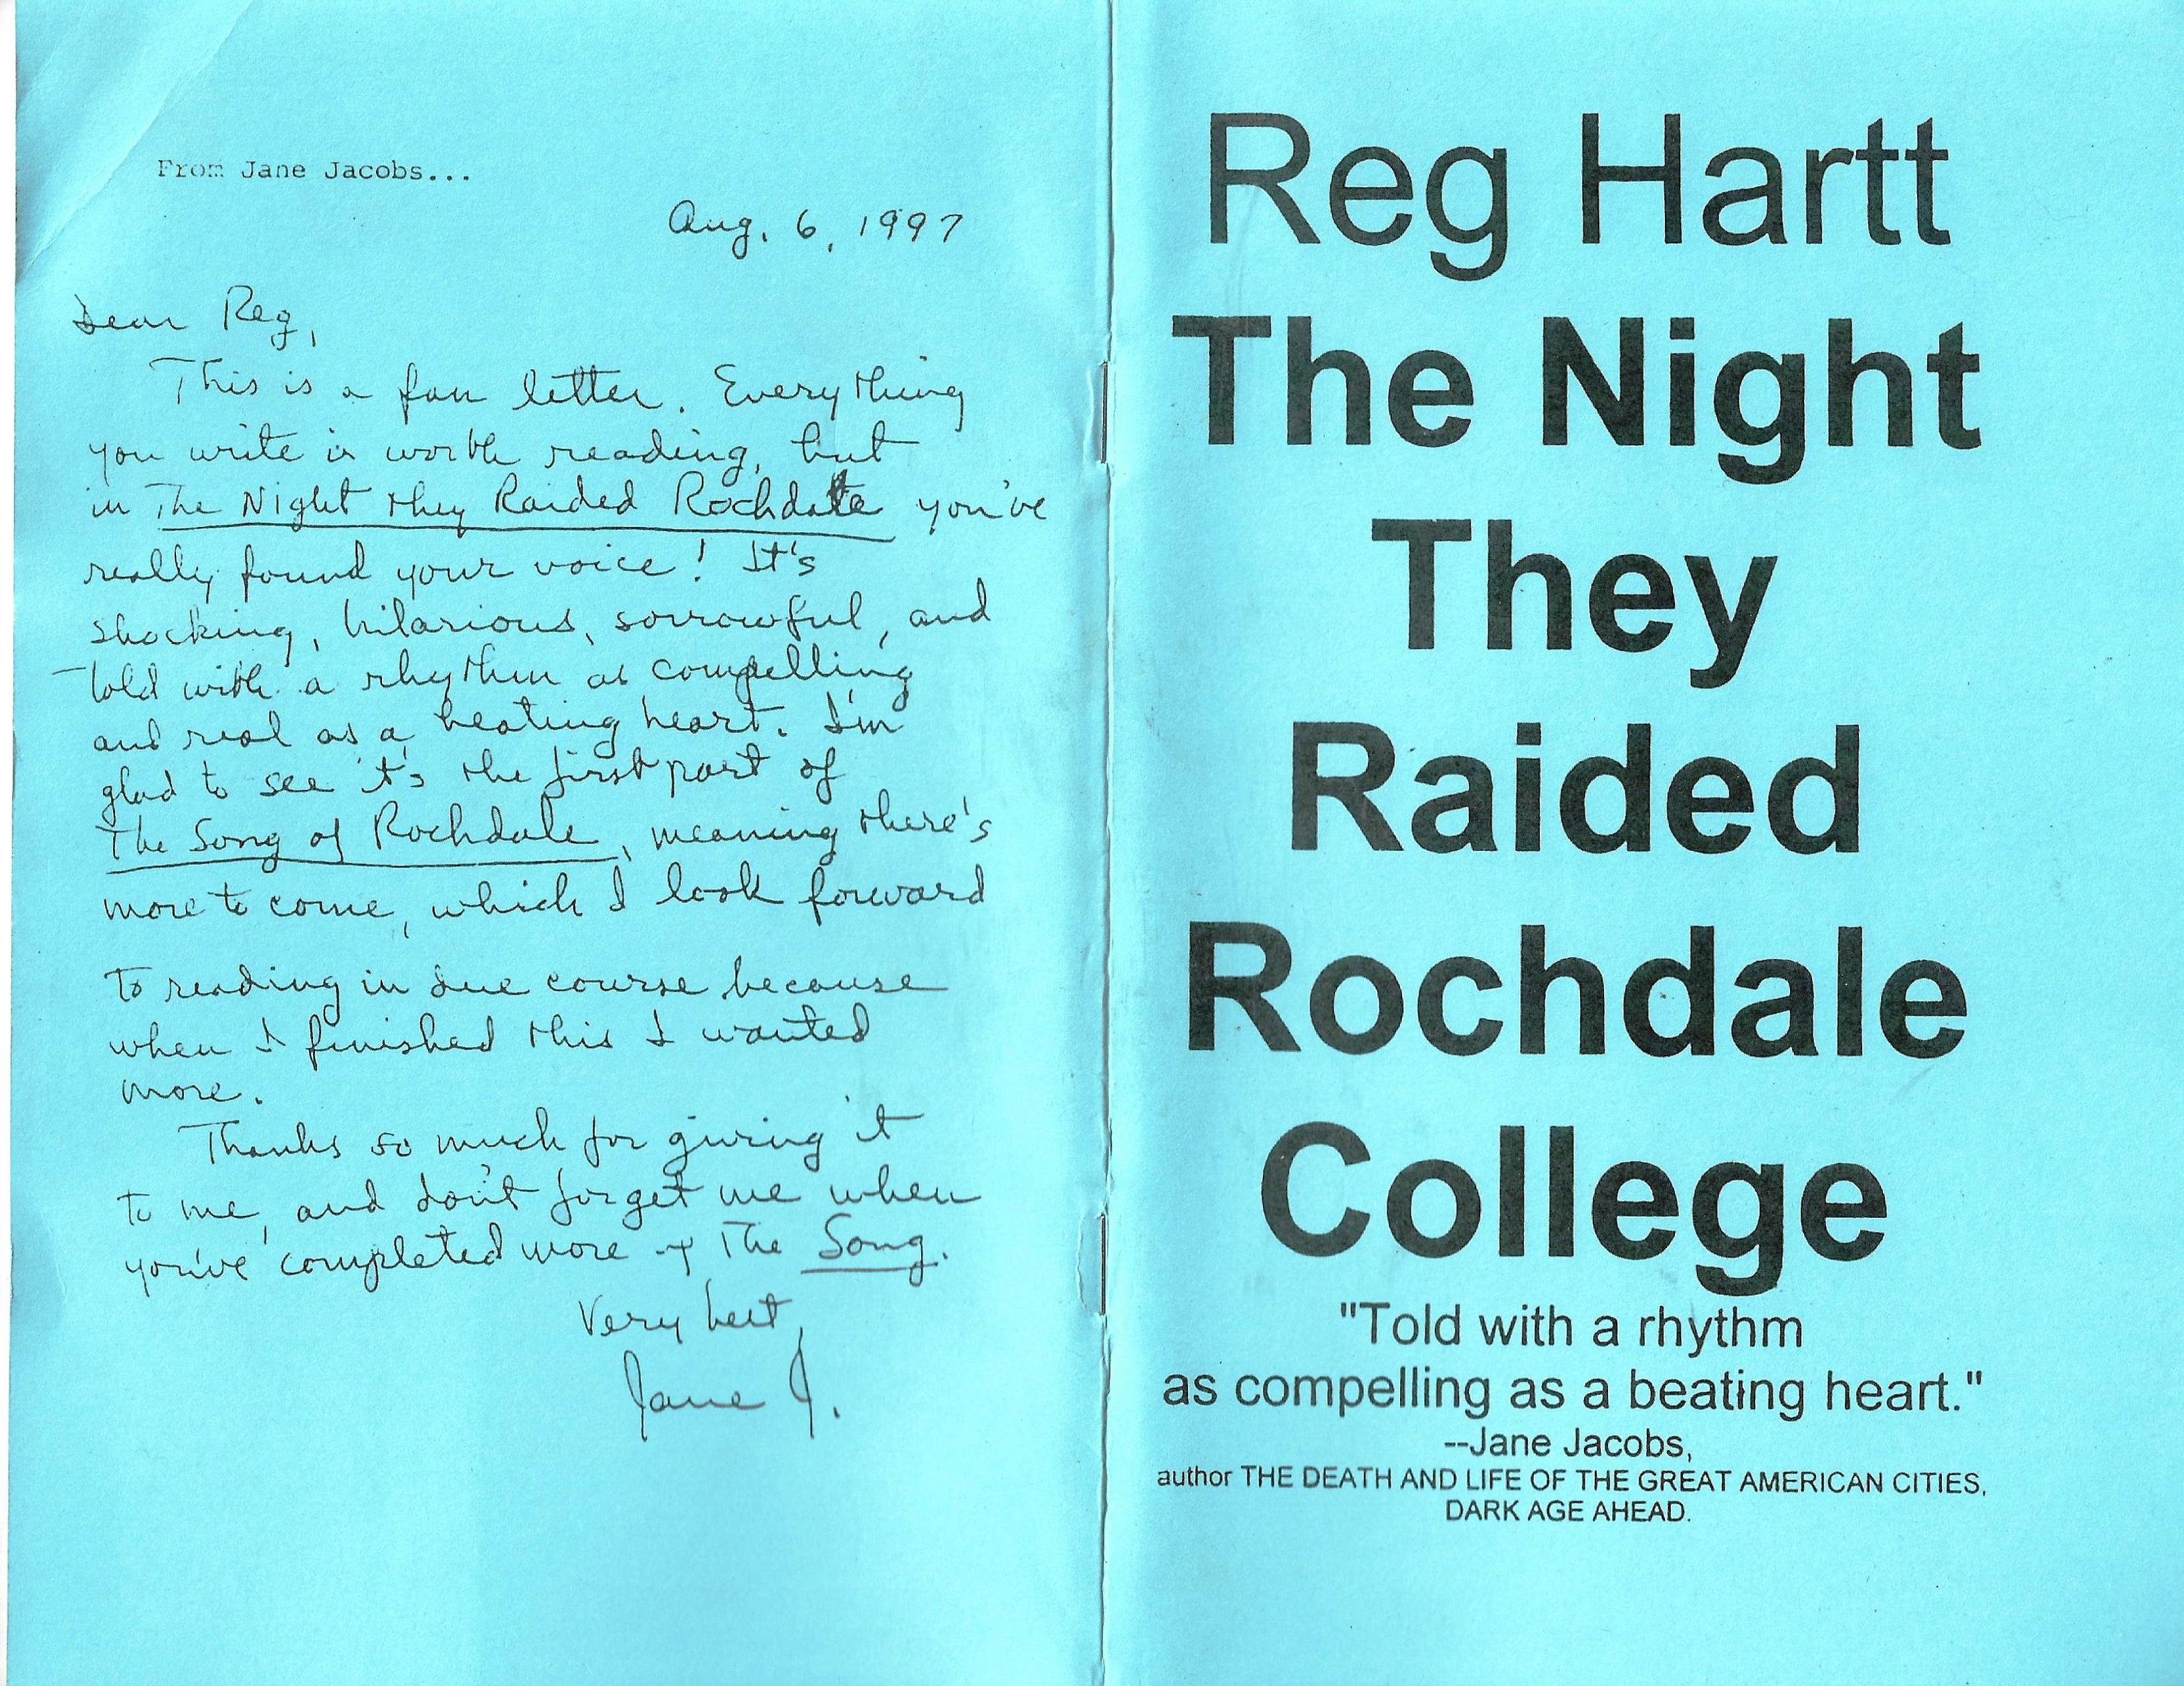 From Jane Jacobs...
Aug. 6, 1997
Dear Reg,
This is a fan letter. Everything
you write is worth reading, but
in The Night they Raided Rochdale you've
really found your voice! It's
shocking, hilarious, sorrowful, and
told with a rhythm as compelling
and real as a beating heart. I'm
glad to see it's the first part of
The Song of Rochdale, meaning there's
more to come, which I look forward
to reading in due course because
when I finished this I wanted
more.
Thanks so much for giving it
to me, and don't forget me when
you've completed more of The Song.
Very best,
Jane J.
Reg Hartt
The Night
They
Raided
Rochdale
College
"Told with a rhythm
as compelling as a beating heart."
--Jane Jacobs,
author THE DEATH AND LIFE OF THE GREAT AMERICAN CITIES,
DARK AGE AHEAD.